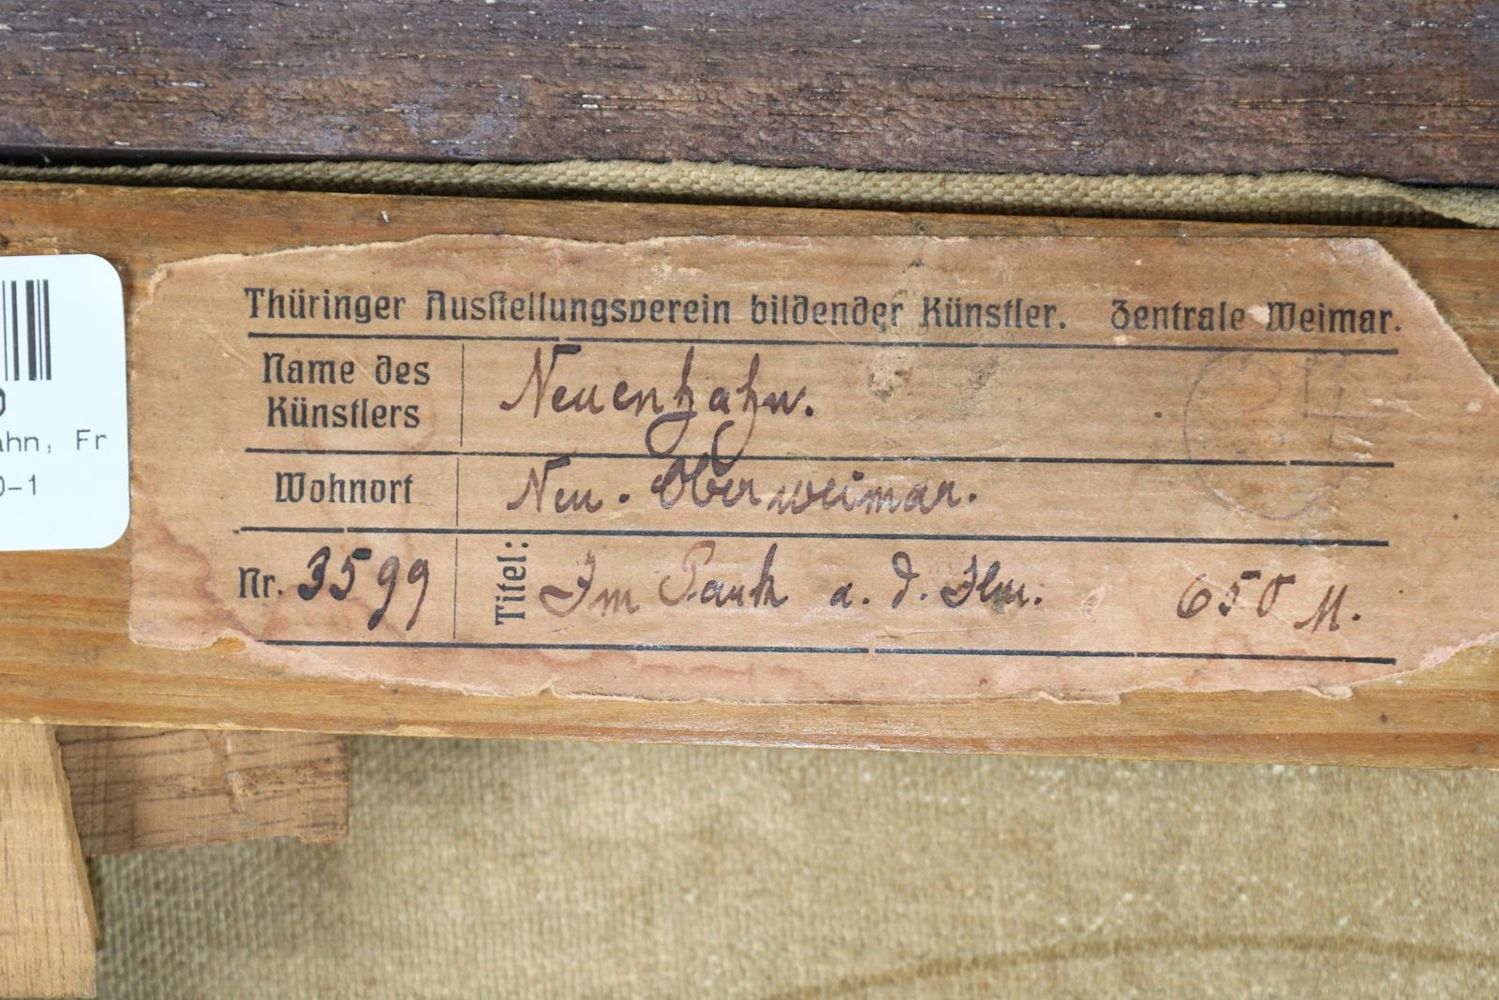 Thüringer Ausstellungsverein bildender Künstler. Zentrale Weimar.
Name des
Künstlers
Neuenhahn.
Wohnort
Neu-Oberweimar.
Nr. 3599
Titel: Im Park a. d. Ilm. 650 M.
ahn, Fr
0-1